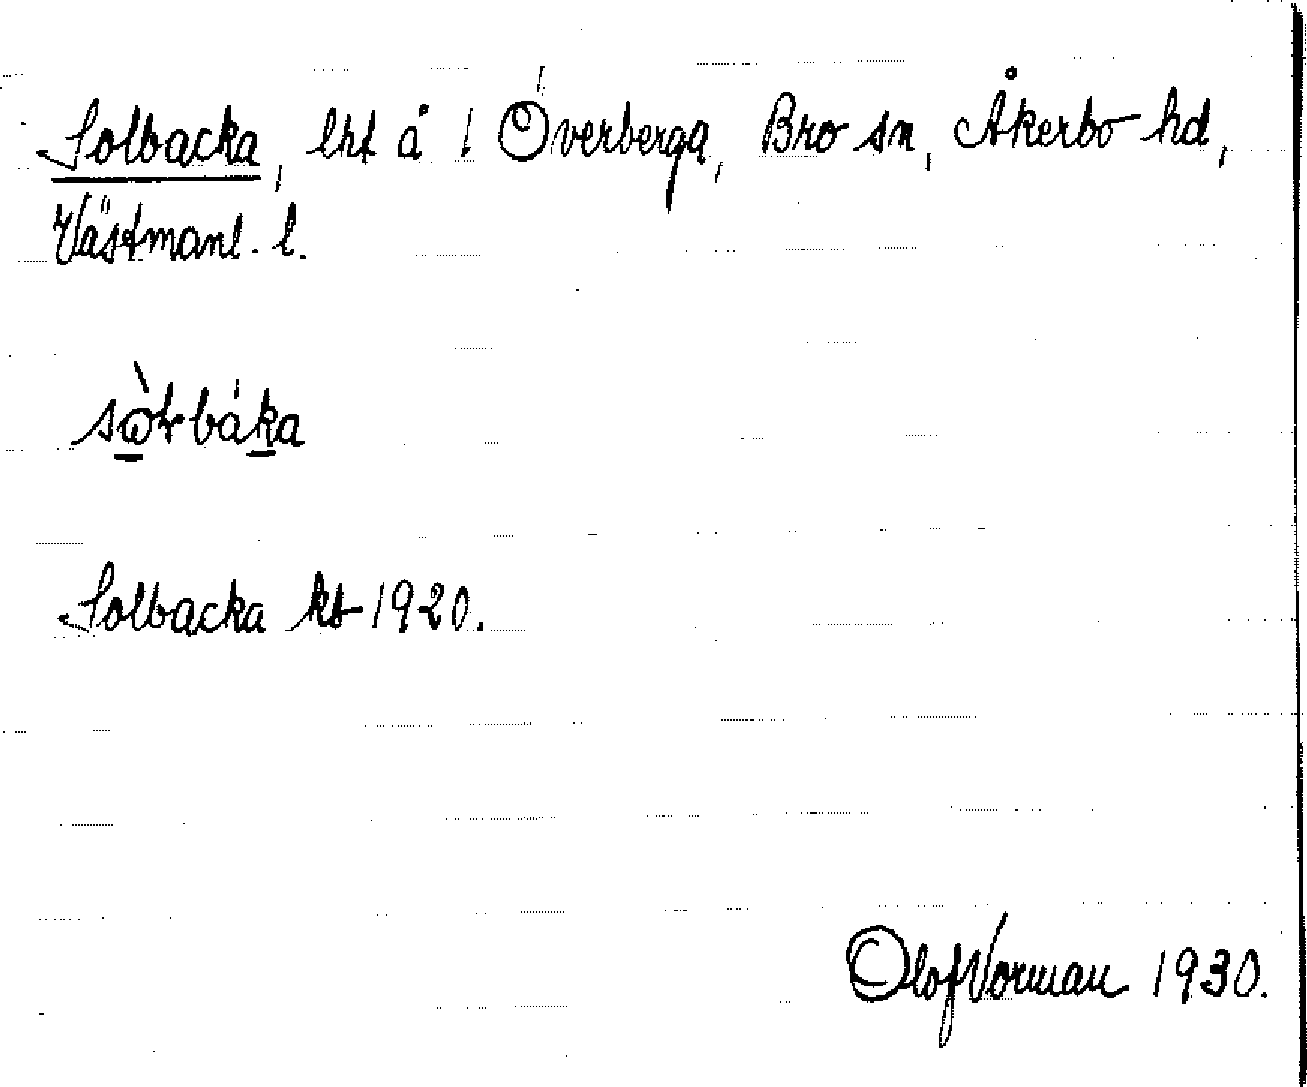 Solbacka, lht å 1 Överberga, Bro sn, Åkerbo hd,
Västmanl. l.
Solbacka kb 1920.
Olof Vorman 1930.